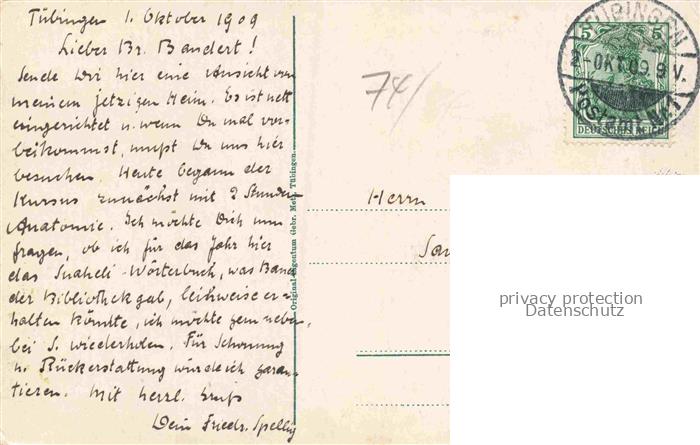 Tübingen 1. Oktober 1909
Lieber Br. Bandert!
Sende Dir hier eine Ansicht von
meinem jetzigen Heim. Es ist nett
eingerichtet u. wenn Du mal vor-
beikommst, mußt Du uns hier
besuchen. Heute begann der
Kursus zunächst mit 2 Stunden
Anatomie. Ich möchte Dich nun
fragen, ob ich für das Jahr hier
das Suaheli-Wörterbuch, was
der Bibliothek gab, leihweise er-
halten könnte, ich möchte gern neben-
bei S. wiederholen. Für Schonung
u. Rückerstattung würde ich garan-
tieren. Mit herzl. Gruß
Dein Friedr.
Original-Eigentum Gebr. Metz, Tübingen.
74/
Herrn
TÜBINGEN
2-OKT.09. 9 V.
5 5
DEUTSCHES REICH
privacy protection
Datenschutz